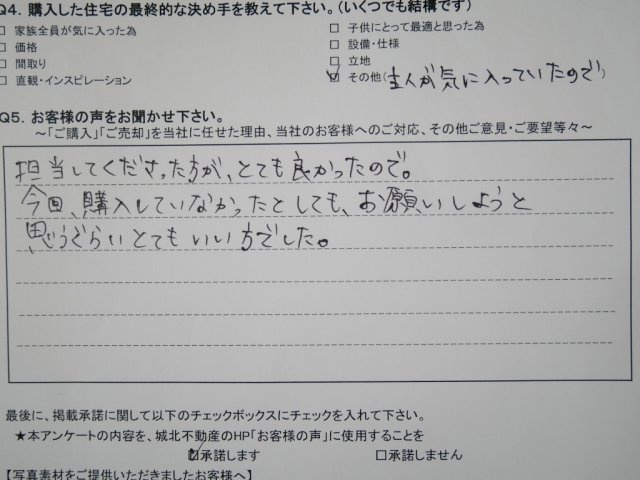 Q4. 購入した住宅の最終的な決め手を教えて下さい。(いくつでも結構です)
□ 家族全員が気に入った為
□ 子供にとって最適と思った為
□ 価格
□ 設備・仕様
□ 間取り
□ 立地
□ 直観・インスピレーション
☑ その他(主人が気に入っていたので)
Q5. お客様の声をお聞かせ下さい。
~「ご購入」「ご売却」を当社に任せた理由、当社のお客様へのご対応、その他ご意見・ご要望等々~
担当してくださった方が、とても良かったので。
今回、購入していなかったとしても、お願いしようと
思うぐらいとてもいい方でした。
最後に、掲載承諾に関して以下のチェックボックスにチェックを入れて下さい。
★本アンケートの内容を、城北不動産のHP「お客様の声」に使用することを
☑承諾します □承諾しません
【写真素材をご提供いただきましたお客様へ】